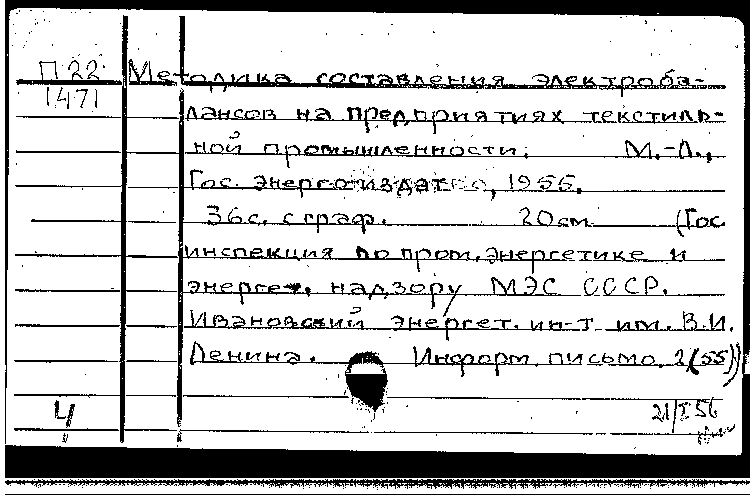 П 22 Методика составления электроба-
1471
лансов на предприятиях текстиль-
ной промышленности. М.-Л.,
Гос. энергоиздат, 1955.
36с. с граф. 20см (Гос.
инспекция по пром. энергетике и
энергет. надзору МЭС СССР.
Ивановский энергет. ин-т им. В.И.
Ленина. Информ. письмо. 2(55))
4 21/I 56